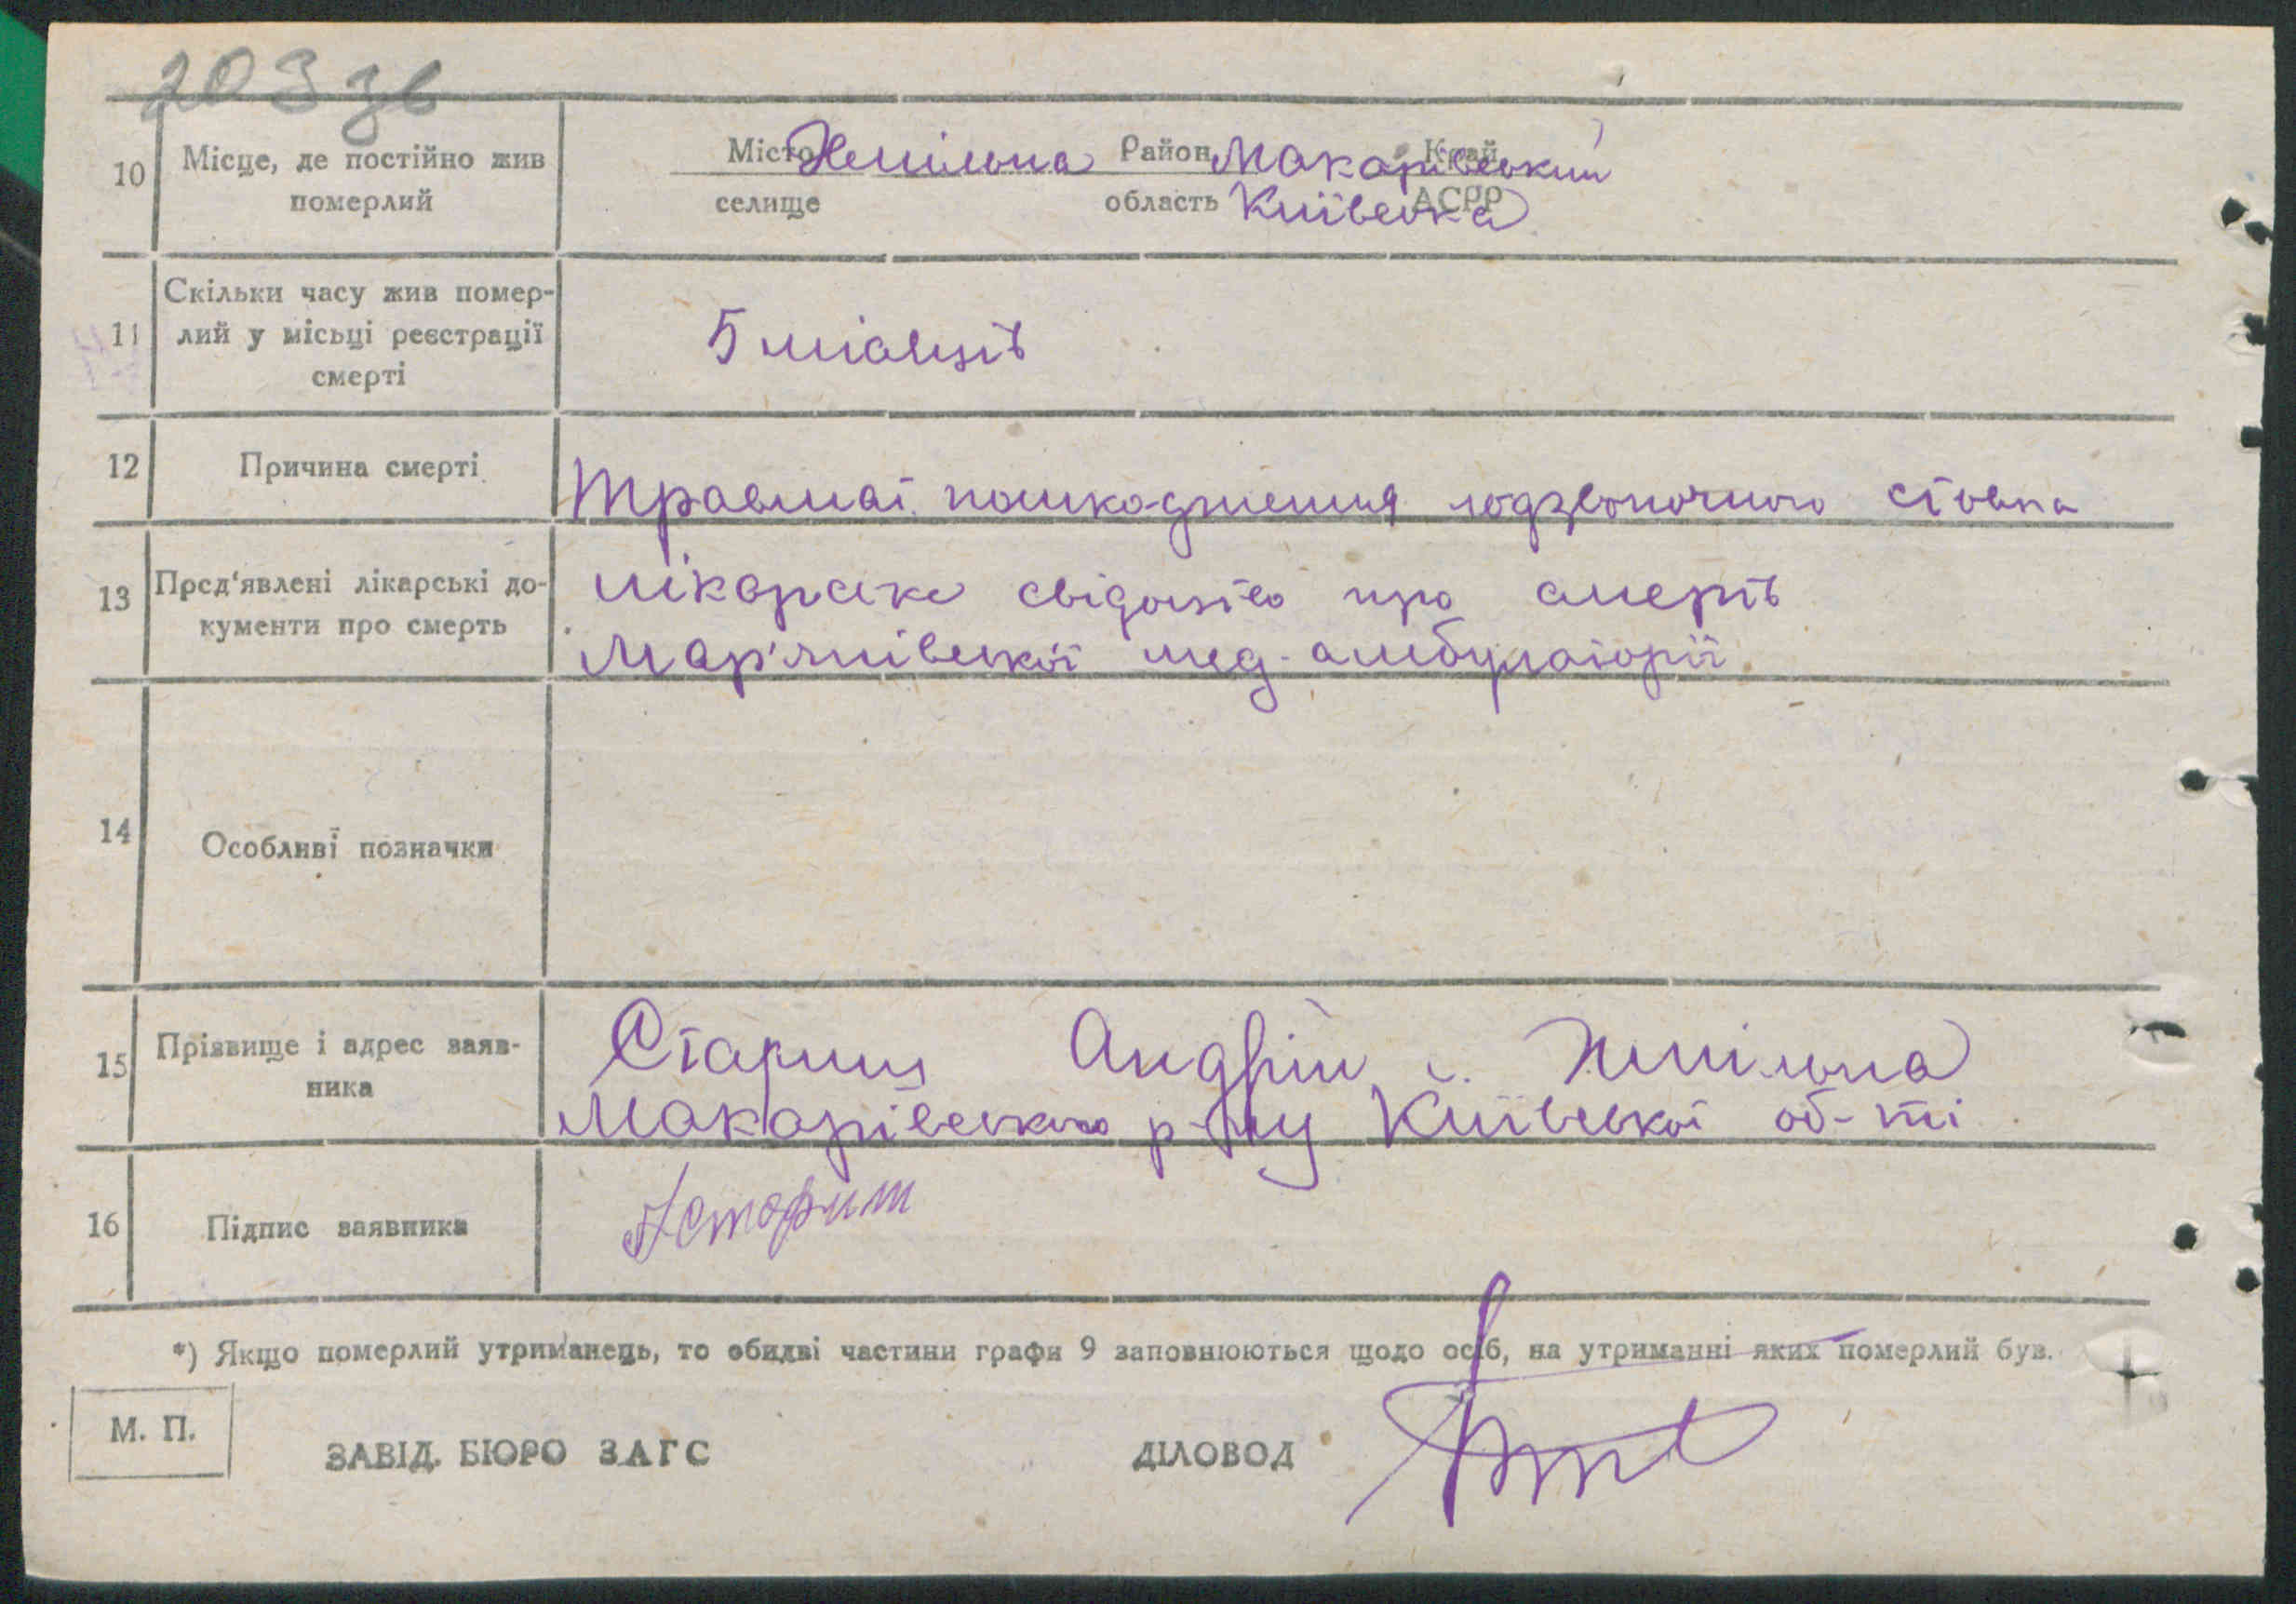 203 зв
10 Місце, де постійно жив померлий
Місто Ніжиловка Район Макарівський Край
селище область Київська АСРР
11 Скільки часу жив помер-
лий у місьці реєстрації
смерті
5 місяців
12 Причина смерті
Травмаї пошкодження подзвоночного стовпа
13 Прєд'явлені лікарські до-
кументи про смерть
лікарське свідоцтво про смерть
Мар'янівської мед-амбулаторії
14 Особливі позначки
15 Прізвище і адрес заяв-
ника
Андрій с.
Макарівського р-ну Київської об-ті
16 Підпис заявника
*) Якщо померлий утриманець, то обидві частини графи 9 заповнюються щодо осіб, на утриманні яких померлий був.
М. П.
ЗАВІД. БЮРО ЗАГС ДІЛОВОД